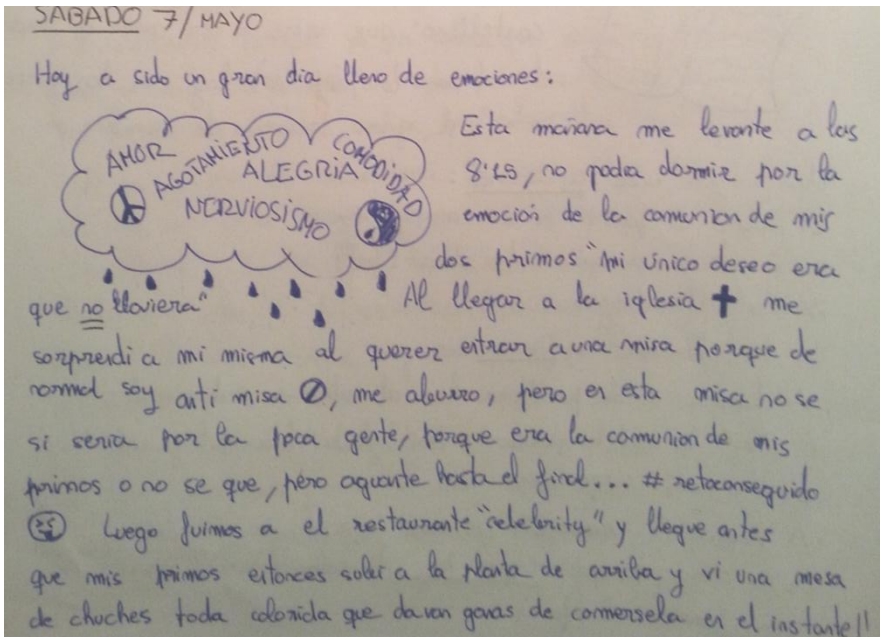 SABADO 7/MAYO
Hoy a sido un gran dia lleno de emociones:
AMOR
AGOTAMIENTO
COMODIDAD
ALEGRIA
NERVIOSISMO
Esta mañana me levante a las
8'15, no podia dormir por la
emoción de la comunion de mis
dos primos "mi único deseo era
que no lloviera"
Al llegar a la iglesia me
sorprendi a mi misma al querer entrar a una misa porque de
normal soy anti misa, me aburro, pero en esta misa no se
si seria por la poca gente, porque era la comunion de mis
primos o no se que, pero aguante hasta el final... #retoconseguido
Luego fuimos a el restaurante "celebrity" y llegue antes
que mis primos entonces subi a la planta de arriba y vi una mesa
de chuches toda colorida que davan ganas de comersela en el instante!!